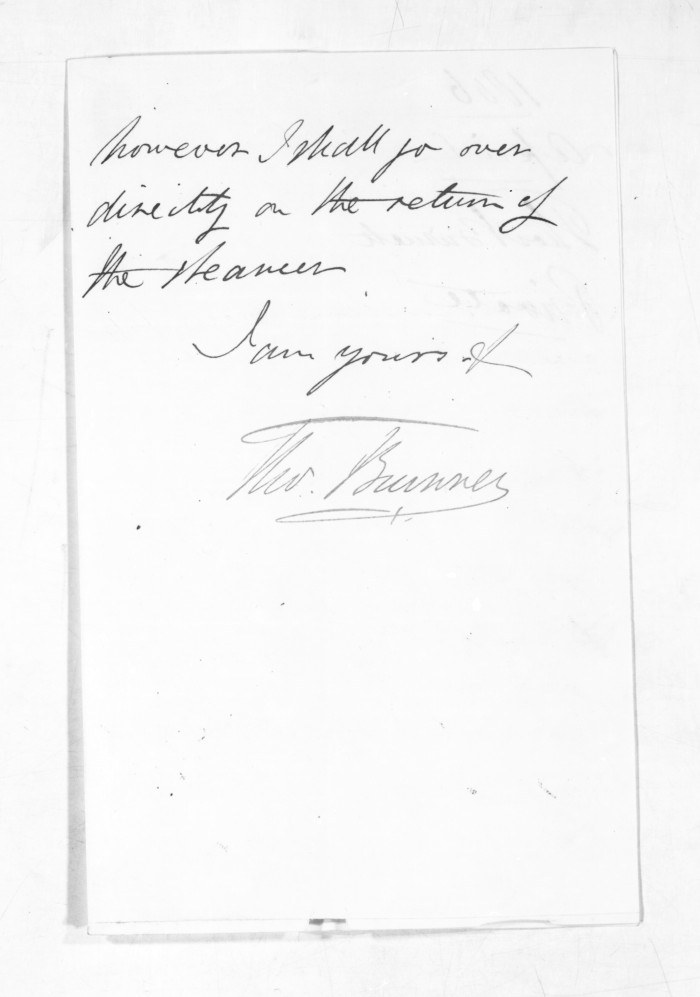 however I shall go over
directly on the return of
the steamer
I am yours &
Tho. Brunner